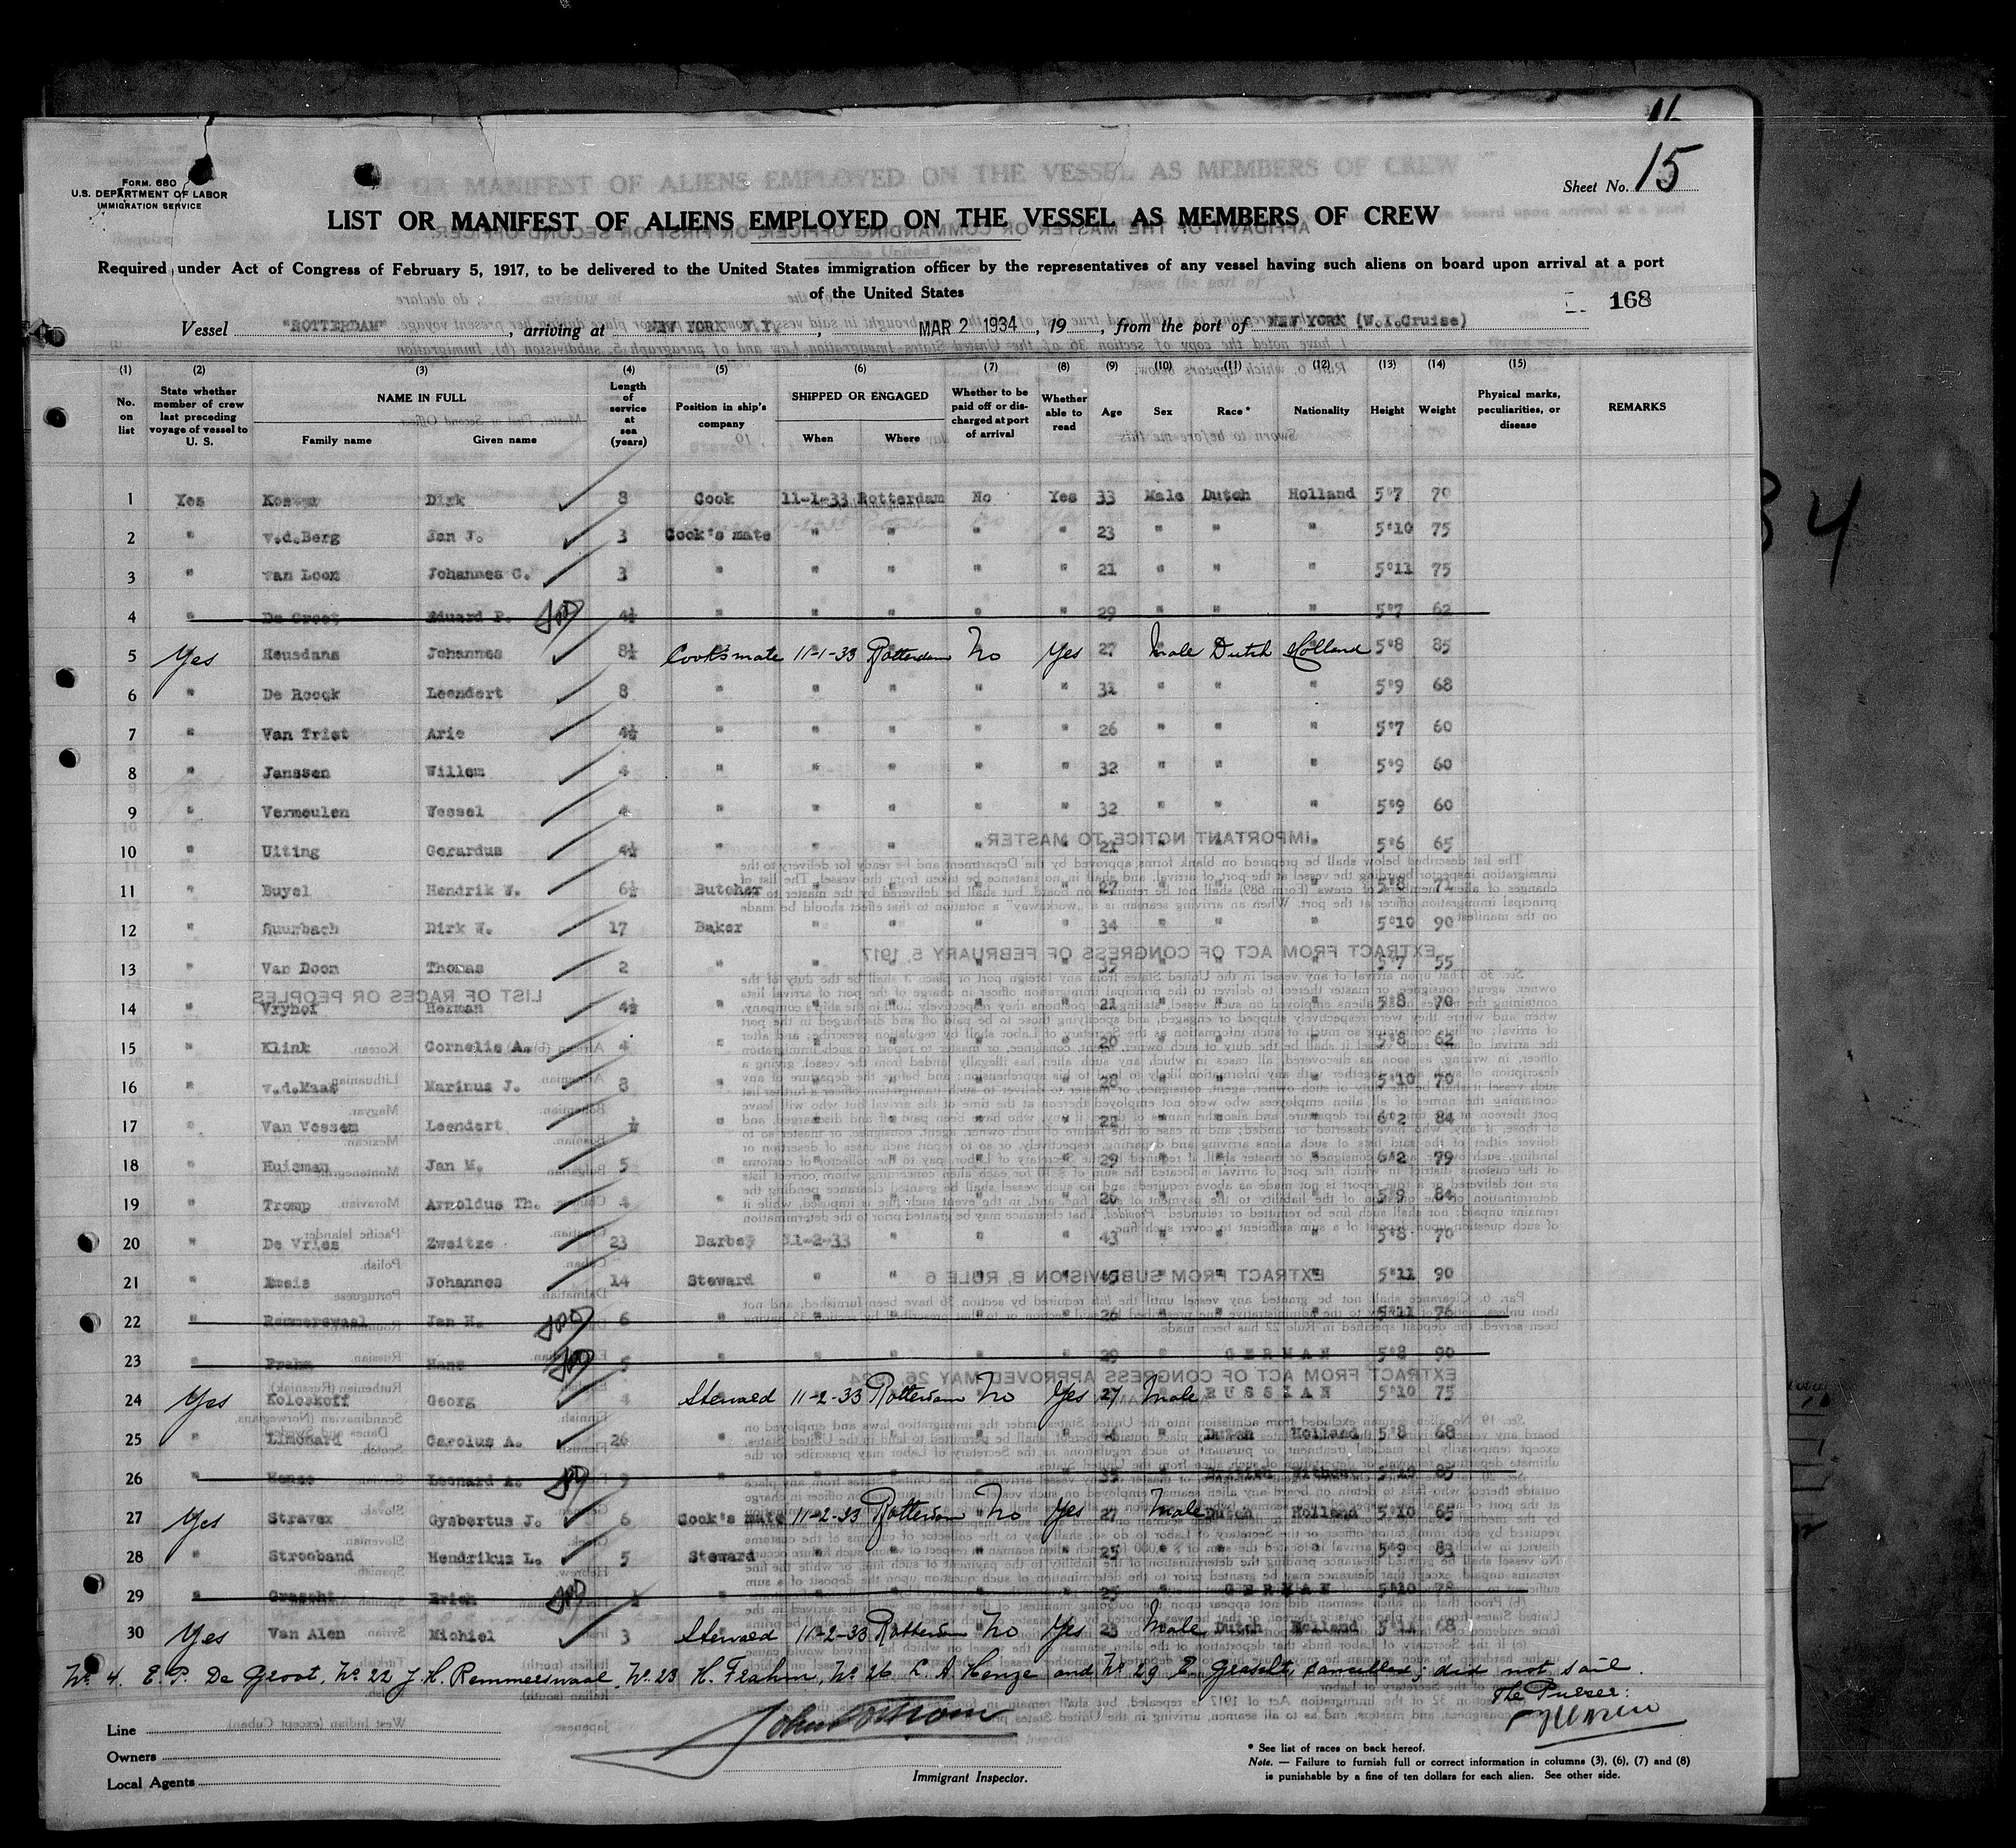 11
Sheet No. 15
FORM. 680
U.S. DEPARTMENT OF LABOR
IMMIGRATION SERVICE
LIST OR MANIFEST OF ALIENS EMPLOYED ON THE VESSEL AS MEMBERS OF CREW
Required under Act of Congress of February 5, 1917, to be delivered to the United States immigration officer by the representatives of any vessel having such aliens on board upon arrival at a port
of the United States
168
Vessel "ROTTERDAM", arriving at NEW YORK N.Y., MAR 2 1934, 19, from the port of NEW YORK (W.I.Cruise)
(1) (2) (3) (4) (5) (6) (7) (8) (9) (10) (11) (12) (13) (14) (15)
No. on list State whether member of crew last preceding voyage of vessel to U. S. NAME IN FULL Family name Given name Length of service at sea (years) Position in ship's company SHIPPED OR ENGAGED When Where Whether to be paid off or discharged at port of arrival Whether able to read Age Sex Race * Nationality Height Weight Physical marks, peculiarities, or disease REMARKS
1 Yes Dirk 8 Cook 11-1-33 Rotterdam No Yes 33 Male Dutch Holland 5"7 70
2 " v.d.Berg Jan J. 3 Cook's mate " " " " 23 " " " 5"10 75
3 " van Loon Johannes C. 3 " " " " " 21 " " " 5"11 75
4 " De Groot Eduard P. 4½ " " " " " 29 " " " 5"7 62
5 Yes Heusdans Johannes 8½ Cook's mate 11-1-33 Rotterdam No Yes 27 Male Dutch Holland 5"8 85
6 " De Roock Leendert 8 " " " " " 31 " " " 5"9 68
7 " Van Triet Arie 4½ " " " " " 26 " " " 5"7 60
8 " Janssen Willem 4 " " " " " 32 " " " 5"9 60
9 " Vermeulen Wessel 4 " " " " " 32 " " " 5"9 60
10 " Uiting Gerardus 4½ " " " " " 21 " " " 5"6 65
11 " Buyel Hendrik W. 6½ Butcher " " " " 27 " " " 5"8 71
12 " Suurbach Dirk W. 17 Baker " " " " 34 " " " 5"10 90
13 " Van Doon Thomas 2 " " " " " 35 " " " 5"7 55
14 " Vryhof Herman 4½ " " " " " 21 " " " 5"8 70
15 " Klink Cornelis A. 4 " " " " " 20 " " " 5"8 62
16 " v.d.Maas Marinus J. 8 " " " " " 28 " " " 5"10 70
17 " Van Vossem Leendert ½ " " " " " 22 " " " 6"2 84
18 " Huisman Jan M. 5 " " " " " 29 " " " 6"2 79
19 " Tromp Arnoldus Th. 4 " " " " " 26 " " " 5"9 84
20 " De Vries Zweitze 23 Barber 11-2-33 " " " 43 " " " 5"8 70
21 " Johannes 14 Steward " " " " " " " 5"11 90
22 " Remmerswaal Jan H. 6 " " " " " 26 " " " 5"11 76
23 " Frahm Hans 5 " " " " " 29 " GERMAN 5"8 90
24 Yes Koleskoff Georg 4 Steward 11-2-33 Rotterdam No Yes 27 Male RUSSIAN 5"10 75
25 " Limonard Carolus A. 26 " " " " " " Dutch Holland 5"8 68
26 " Henze Leonard A. 9 " " " " " 35 " British Without 5"10 85
27 Yes Straver Gysbertus J. 6 Cook's mate 11-2-33 Rotterdam No Yes 27 Male Dutch Holland 5"10 65
28 " Strooband Hendrikus L. 5 Steward " " " " 25 " " " 5"9 83
29 " Erich ½ " " " " " 25 " GERMAN 5"10 78
30 Yes Van Alen Michiel 3 Steward 11-2-33 Rotterdam No Yes 23 Male Dutch Holland 5"11 68
No. 4. E. P. De Groot, No. 22 J. H. Remmerswaal, No. 23 H. Frahm, No. 26 L. A Henze and No. 29 E. cancelled; did not sail.
The Purser:
Line
Owners
Local Agents
Immigrant Inspector.
* See list of races on back hereof.
Note. — Failure to furnish full or correct information in columns (3), (6), (7) and (8)
is punishable by a fine of ten dollars for each alien. See other side.